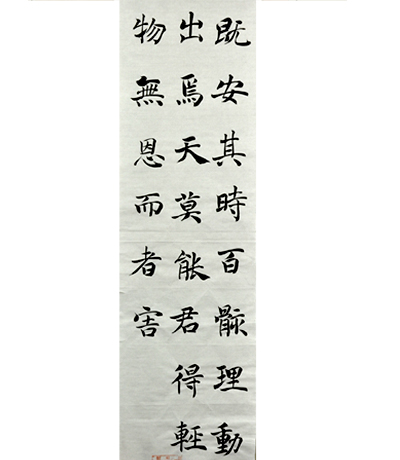 既安其時百骸理動
出焉天莫能君得輕
物無恩而者害